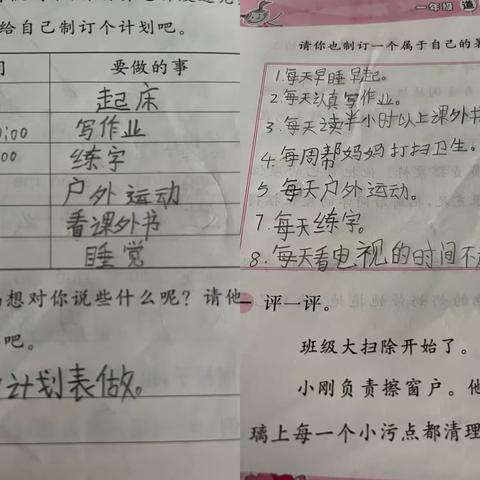 给自己制订个计划吧。
间 要做的事
起床
0:00 写作业
:00 练字
户外运动
看课外书
睡觉
想对你说些什么呢？请他
吧。
计划表做。
一年级 道
请你也制订一个属于自己的暑
1.每天早睡早起。
2.每天认真写作业。
3.每天读半小时以上课外书
4.每周帮妈妈打扫卫生。
5.每天户外运动。
7.每天练字。
8.每天看电视的时间不
评一评。
班级大扫除开始了。
小刚负责擦窗户。他
璃上每一个小污点都清理